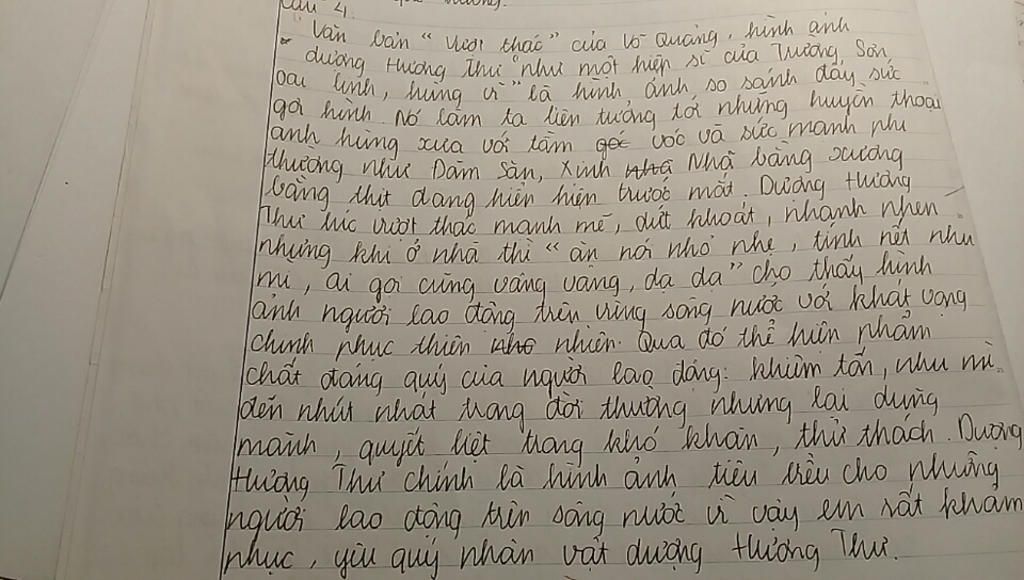 Câu 4.
Văn bản “Vượt thác” của Võ Quảng, hình ảnh
dượng Hương Thư “như một hiệp sĩ của Trường Sơn
oai linh, hùng vĩ” là hình ảnh so sánh đầy sức
gợi hình. Nó làm ta liên tưởng tới những huyền thoại
anh hùng xưa với tầm vóc và sức mạnh phi
thường như Đăm Săn, Xinh Nhã bằng xương
bằng thịt đang hiển hiện trước mắt. Dượng Hương
Thư lúc vượt thác mạnh mẽ, dứt khoát, nhanh nhẹn
nhưng khi ở nhà thì “ăn nói nhỏ nhẹ, tính nết nhu
mì, ai gọi cũng vâng vâng, dạ dạ” cho thấy hình
ảnh người lao động trên vùng sông nước với khát vọng
chinh phục thiên nhiên. Qua đó thể hiện phẩm
chất đáng quý của người lao động: khiêm tốn, nhu mì
đến nhút nhát trong đời thường nhưng lại dũng
mãnh, quyết liệt trong khó khăn, thử thách. Dượng
Hương Thư chính là hình ảnh tiêu biểu cho những
người lao động trên sông nước vì vậy em rất khâm
phục, yêu quý nhân vật dượng Hương Thư.